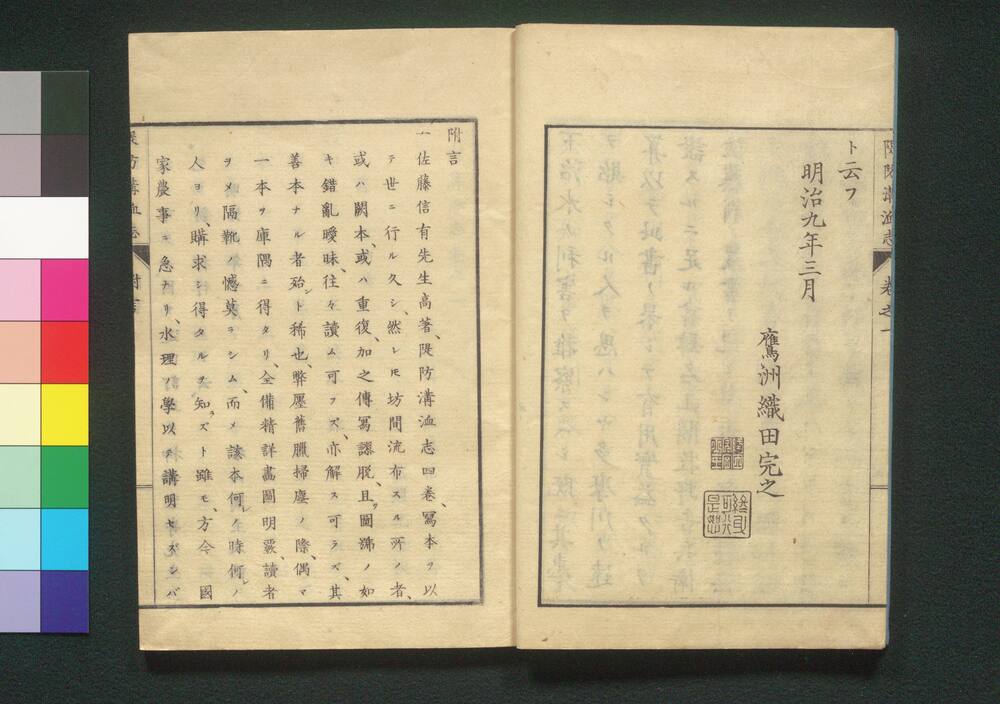 ト云フ
明治九年三月
鷹洲織田完之
堤防溝洫志 卷之一
附言
一佐藤信有先生高著、隄防溝洫志四卷、寫本ヲ以
テ世ニ行ル久シ、然レ𪜈坊間流布スル所ノ者、
或ハ闕本、或ハ重復、加之傳寫謬脱、且圖渀ノ如
キ錯亂曖昧、往々讀ム可ラズ、亦解ス可ラズ、其
善本ナル者殆ント稀也、弊壓舊臘掃塵ノ際、偶マ
一本ヲ庫隅ニ得タリ、全備精詳畵圖明覈、讀者
ヲメ隔靴ノ憾莫ラシム、而メ該本何レノ時何レノ
人ヨリ、購求シ得タルヲ知ラズト雖モ、方今國
家農事ニ急ナリ、水理ノ學以テ講明セズンバ
堤防溝洫志 附言